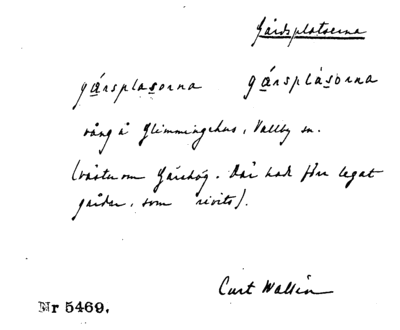 Gårdsplatserna
gársplasorna gársplàsorna
vång å Glimmingehus, Vallby sn.
(väster om Gårehög. Där hade förr legat
gårdar, som rivits).
Curt Wallin
Nr 5469.